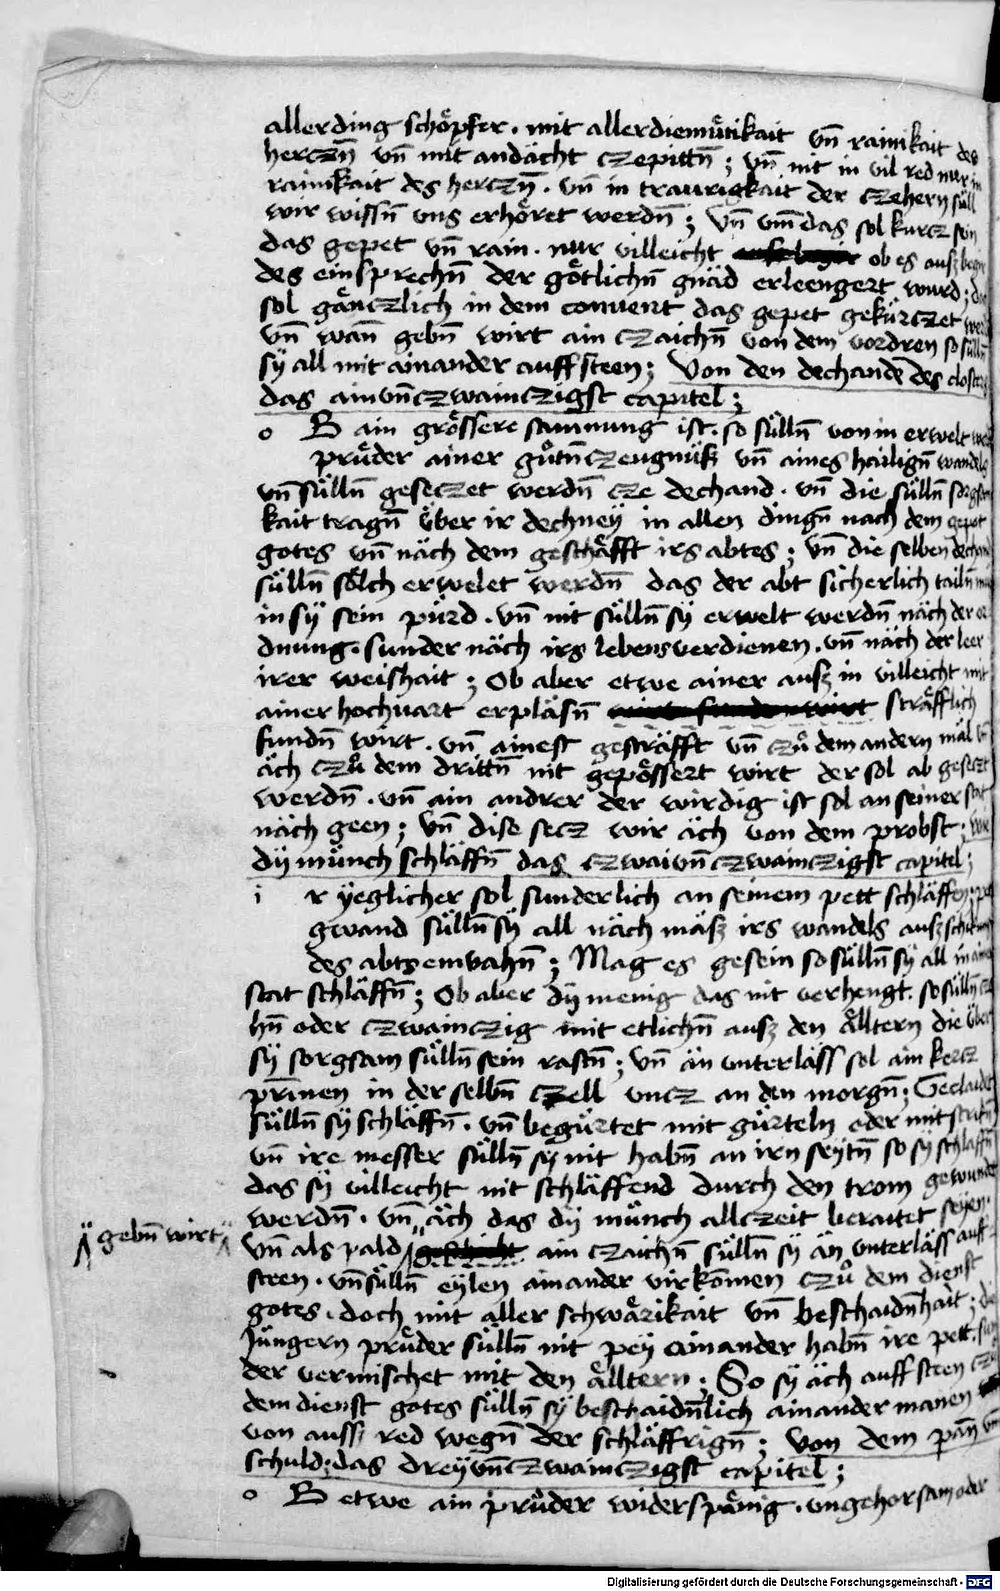 allerding schöpfer · mit allerdiemütikait vn̄ rainikait des
herczn̄ vn̄ mit andächt czepittn̄ ; vn̄ nit in vil red nur in
rainikait des herczn̄ · vn̄ in traurigkait der czehern süll
wir wissn̄ vns erhöret werdn̄ ; Vn̄ vm̄ das sol kurcz sein
das gepet vn̄ rain · nur villeicht ob es ausz begir
des einsprechn̄ der götlichn̄ gnäd erleengert wurd ; doch
sol gänczlich in dem conuent das gepet gekürczet werdn̄
vn̄ wan̄ gebn̄ wirt ain czaichn̄ von dem vordren so sülln̄
sÿ all mit ainander auff steen ; Von den dechandē des closters
das ainvn̄czwainczigst capitel ;
o B ain grössere samnung ist · so sülln̄ von in erwelt werdn̄
prüder ainer gůtn̄ czeugnüsz vn̄ aines hailign̄ wandels
vn̄ sülln̄ geseczet werdn̄ cze dechand · vn̄ die sülln̄ sorgsam
kait tragn̄ über ir dechneÿ in allen dingn̄ nach dem gepot
gotes vn̄ näch dem geschäfft irs abtes ; vn̄ die selben dechand
sülln̄ sölch erwelet werdn̄ das der abt sicherlich tailn̄ müg
in sÿ sein pürd · vn̄ nit sülln̄ sÿ erwelt werdn̄ näch der or
dnung · sunder näch irs lebens verdienen · vn̄ näch der leer
irer weishait ; Ob aber etwe ainer ausz in villeicht mit
ainer hochuart erpläsn̄ sträfflich
fundn̄ wirt · vn̄ ainest gesträfft vn̄ czů dem andern mäl vn̄
äch czů dem drittn̄ nit gepössert wirt der sol ab geseczt
werdn̄ · vn̄ ain andrer der wirdig ist sol an seiner stat
näch geen ; Vn̄ dise secz wir äch von dem probst ; Wie
dÿ münch schläffn̄ das czwaivn̄czwainczigst capitel ;
i r yeglicher sol sunderlich an seinem pett schläffen · pett
gwand sülln̄ sÿ all näch mäsz irs wandels ausz schikung
des abts emvahn̄ ; Mag es gesein so sülln̄ sÿ all in ainer
stat schläffn̄ ; Ob aber dÿ menig das nit verhengt · so sülln̄ cze
hn̄ oder czwainczig mit etlichn̄ ausz den älltern die über
sÿ sorgsam sülln̄ sein rastn̄ ; Vn̄ än vnterläss sol ain kercz
prin̄en in der selbn̄ czell vncz an den morgn̄ ; Geclaidet
sülln̄ sÿ schläffn̄ · vn̄ begürtet mit gürteln oder mit strikn̄
vn̄ ire messer sülln̄ sÿ nit habn̄ an irn seytn̄ so sÿ schläffn̄
das sÿ villeicht nit schläffend durch den trom gewundet
werdn̄ · vn̄ äch das dÿ münch allczeit beraitet seyen ·
gebn̄ wirt
Vn̄ als pald geschicht ain czaichn̄ sülln̄ sÿ än vnterläss auff
steen · vn̄ sülln̄ eylen ainander vir kōmen czů dem dienst
gotes · doch mit aller schwärikait vn̄ beschaidn̄hait ; die
Jüngern prüder sülln̄ nit peÿ einander habn̄ ire pett · sun
der vermischet mit den älltern ; So sÿ äch auff steen czů
dem dienst gotes sülln̄ sÿ beschaidn̄lich ainander manen
von aussz red wegn̄ der schläffrign̄ ; Von dem pan̄ vn̄
schuld ; das dreyvn̄czwainczigst capitel ;
o B etwe ain prüder widerspänig · vngehorsam oder
Digitalisierung gefördert durch die Deutsche Forschungsgemeinschaft - DFG